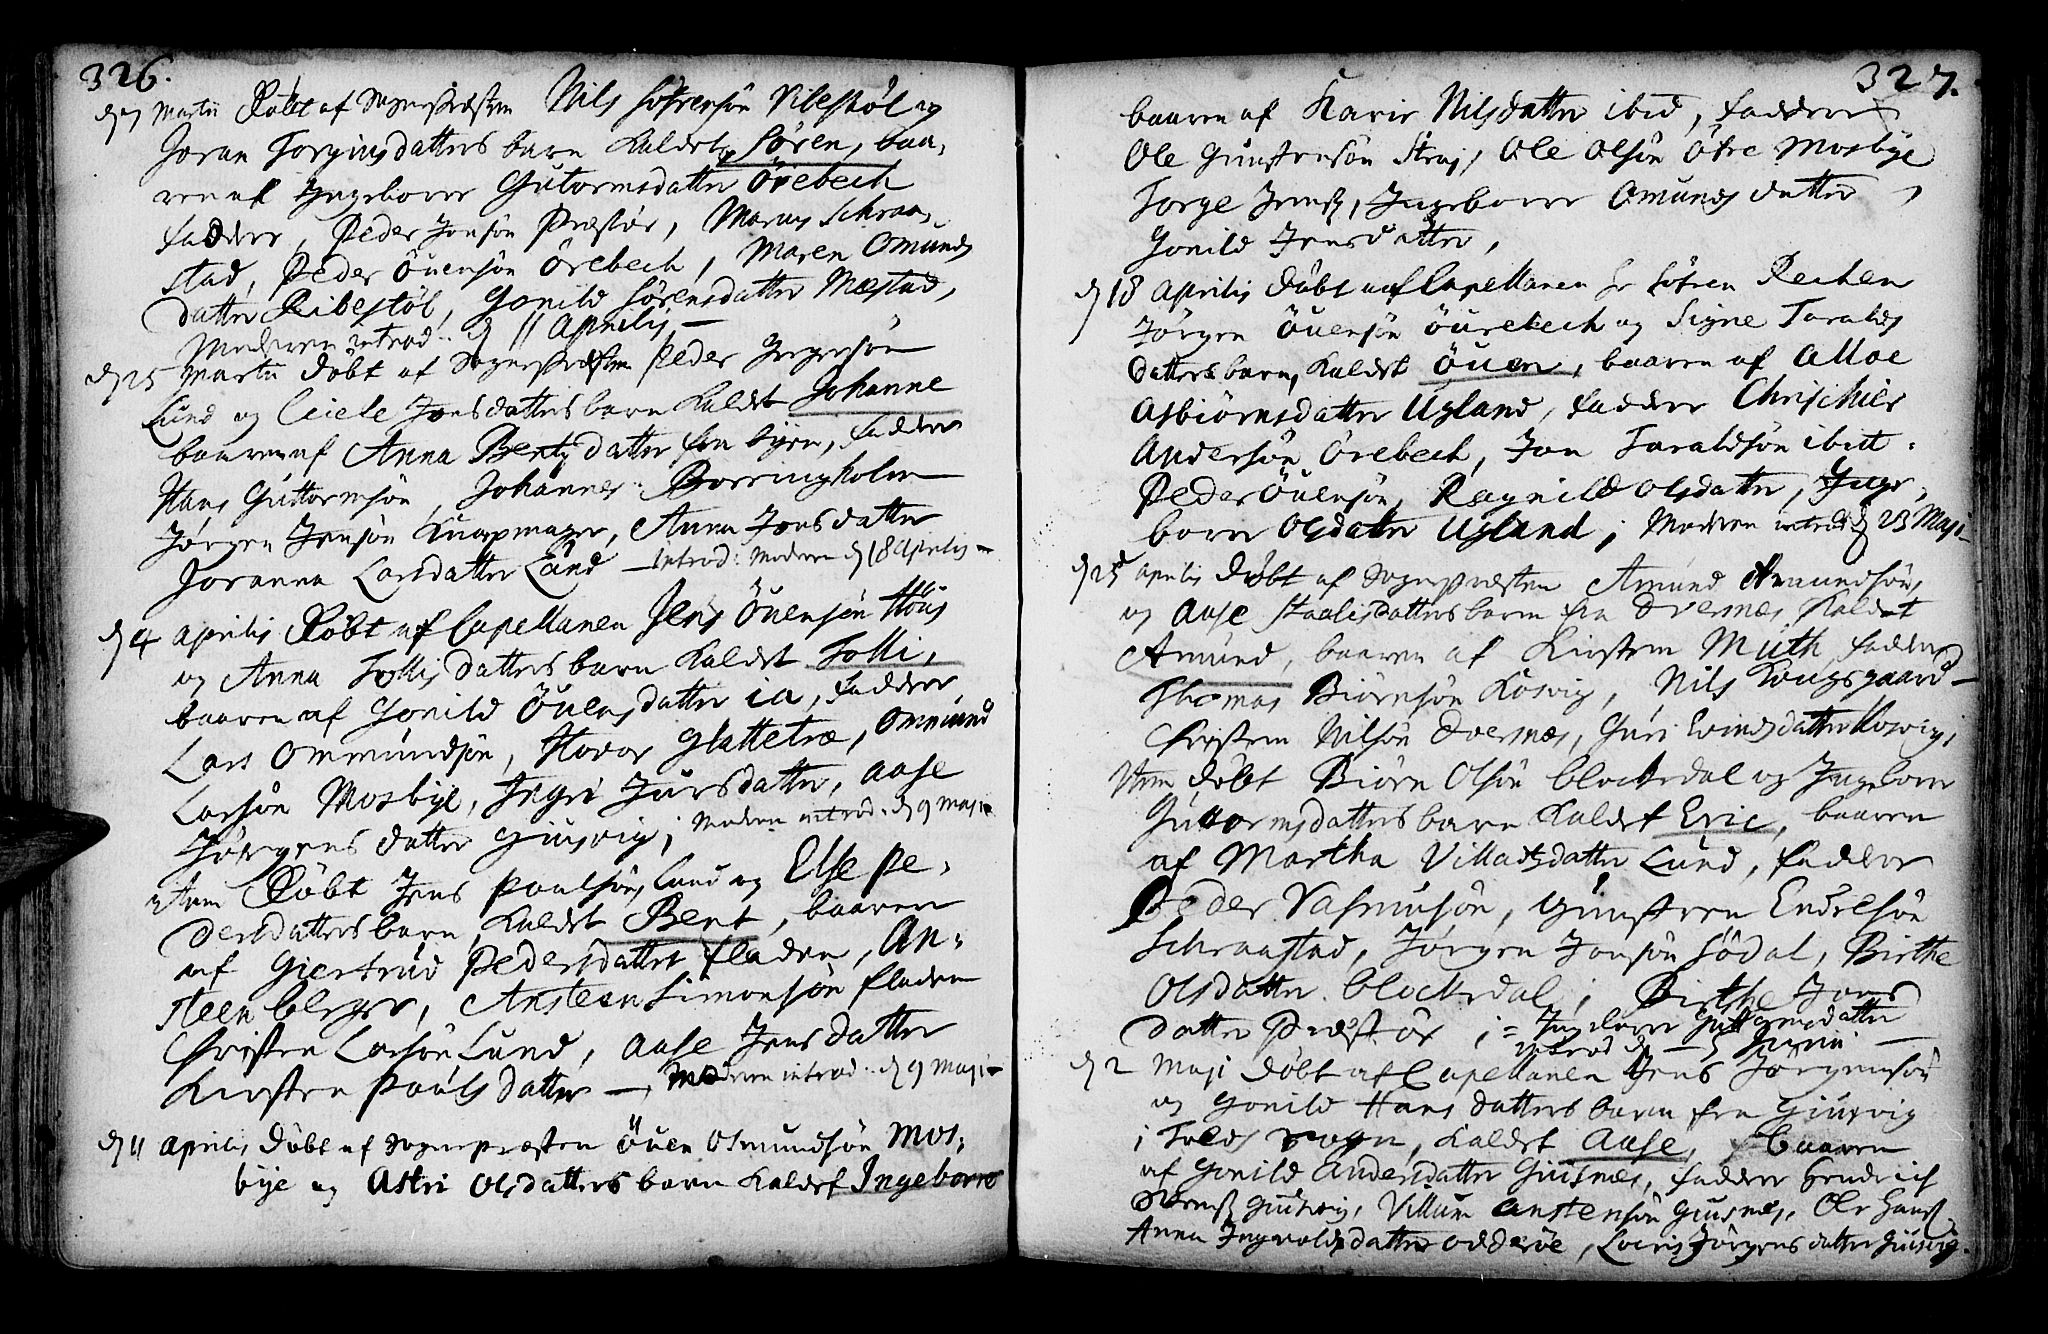 326.
d 7 Martii Döbt af Sognepræsten Nils Söfrensön Vibestöl og
Joran Torgiusdatters barn kaldet Sören, baa,
ren af Ingeborr Gutormsdatter Örebech
fadder, Peder Jonsön Præstör, Marcus Schraa,
stad, Peder Öuensön Örebech, Maren Omunds
datter Ribestöl, Gonild Sörensdatter Mæstad,
Moderen introd.. d 11 Aprilis, —
d 25 Martii Döbt af Sognepræsten Peder Jregersön
Lund og Ciele Jonsdatters barn kaldet Johanne
baaren af Anna Bentsdatter fra byen, fadder
Hans Guttormsön, Johannes Borringholm
Jörgen Jensön Knapmager, Anna Jonsdatter
Joranna Larsdatter Lund — Introd: Moderen d 18 Aprilis —
d 4 Aprilis Döbt af Capellanen Jens Öuensön Höüs
og Anna Tollisdatters barn kaldet Tolli,
baaren af Gonild Öuensdatter ia, fadder
Lars Ommundsön, Hovor Glattetræ, Ommund
Larsön Mosbye, Ingri Jursdatter, Aase
Jörgens datter Giusvig; Moderen introd. d 9 Maji —
item Döbt Jens Poulsön Lund og Else Pe,
dersdatters barn kaldet Bent, baaren
af Giertrud Pedersdatter fladen, An-
steen berge, Ansteen Simonsön fladen
Christen Larsön Lund, Aase Jensdatter
Kirsten Pouls datter —, Moderen introd. d 9 Maji —
d 11 Aprilis Döbt af Sognepræsten Öuen Osmundsön Mos-
bye og Astri Olsdatters barn kaldet Ingeborr
327.
baaren af Karir Nilsdatter ibid, faddere
Ole Gunstensön Straj, Ole Olsön Öfre Mosbye
Torge Jensß, Ingeborr Omunds datter,
Gonild Jensdatter,
d 18 Aprilis Döbt af Capellanen Hr Söfren Reichen
Jörgen Öuensön Öurebech og Signe Taralds
datters barn, kaldet Öuen, baaren af Alloe
Asbiörnsdatter Ugland, fadder Chrischier
Andersön Örebech, Jon Taraldsön ibid.
Peder Öuensön, Ragnild Olsdatter, Inge,
borr Olsdatter Ugland; Moderen introd d 23 Maji
d 25 Aprilis Döbt af Sognepræsten Amund Amundsön
og Aase Staalesdatters barn fra Dversnæs kaldet
Amund, baaren af Kirsten Muth, fadder
Thomas Biörnsön Kosvig, Nils Kongsgaard —
Christen Nilsön Dversnæs, Guri Evindsdatter Kosvig,
item döbt Biörn Olsön Clockerdal og Ingeborr
Guttormsdatters barn kaldet Eric, baaren
af Martha Villadsdatter Lund, fadder
Peder Rasmusön, Gunsteen Endresön
Schraastad, Jörgen Jonsön Södal, Birthe
Olsdatter Clockerdal; Birthe Jons
datter Præstör ; = Ingeborr Guttormsdatter
introd d — 5 Junii —
d 2 Maji Döbt af Capellanen Jens Jörgensön
og Gonild Hans datters barn fra Giusvig
i Treds sogn, kaldet Aase, baaren
af Gonild Andersdatter Giusnæs, fadder Hendrich
Giusvig, Villum Anstensön Giusnæs, Ole Hansß
Anna Ingvoldsdatter Odderöe, Loeris Jörgens datter Giusvig.